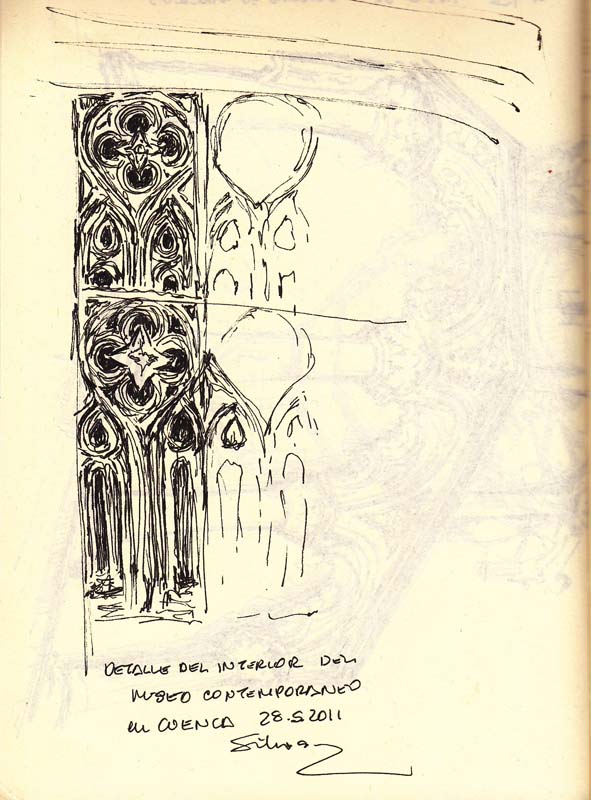 DETALLE DEL INTERIOR DEL
MUSEO CONTEMPORANEO
EN CUENCA 28.5.2011